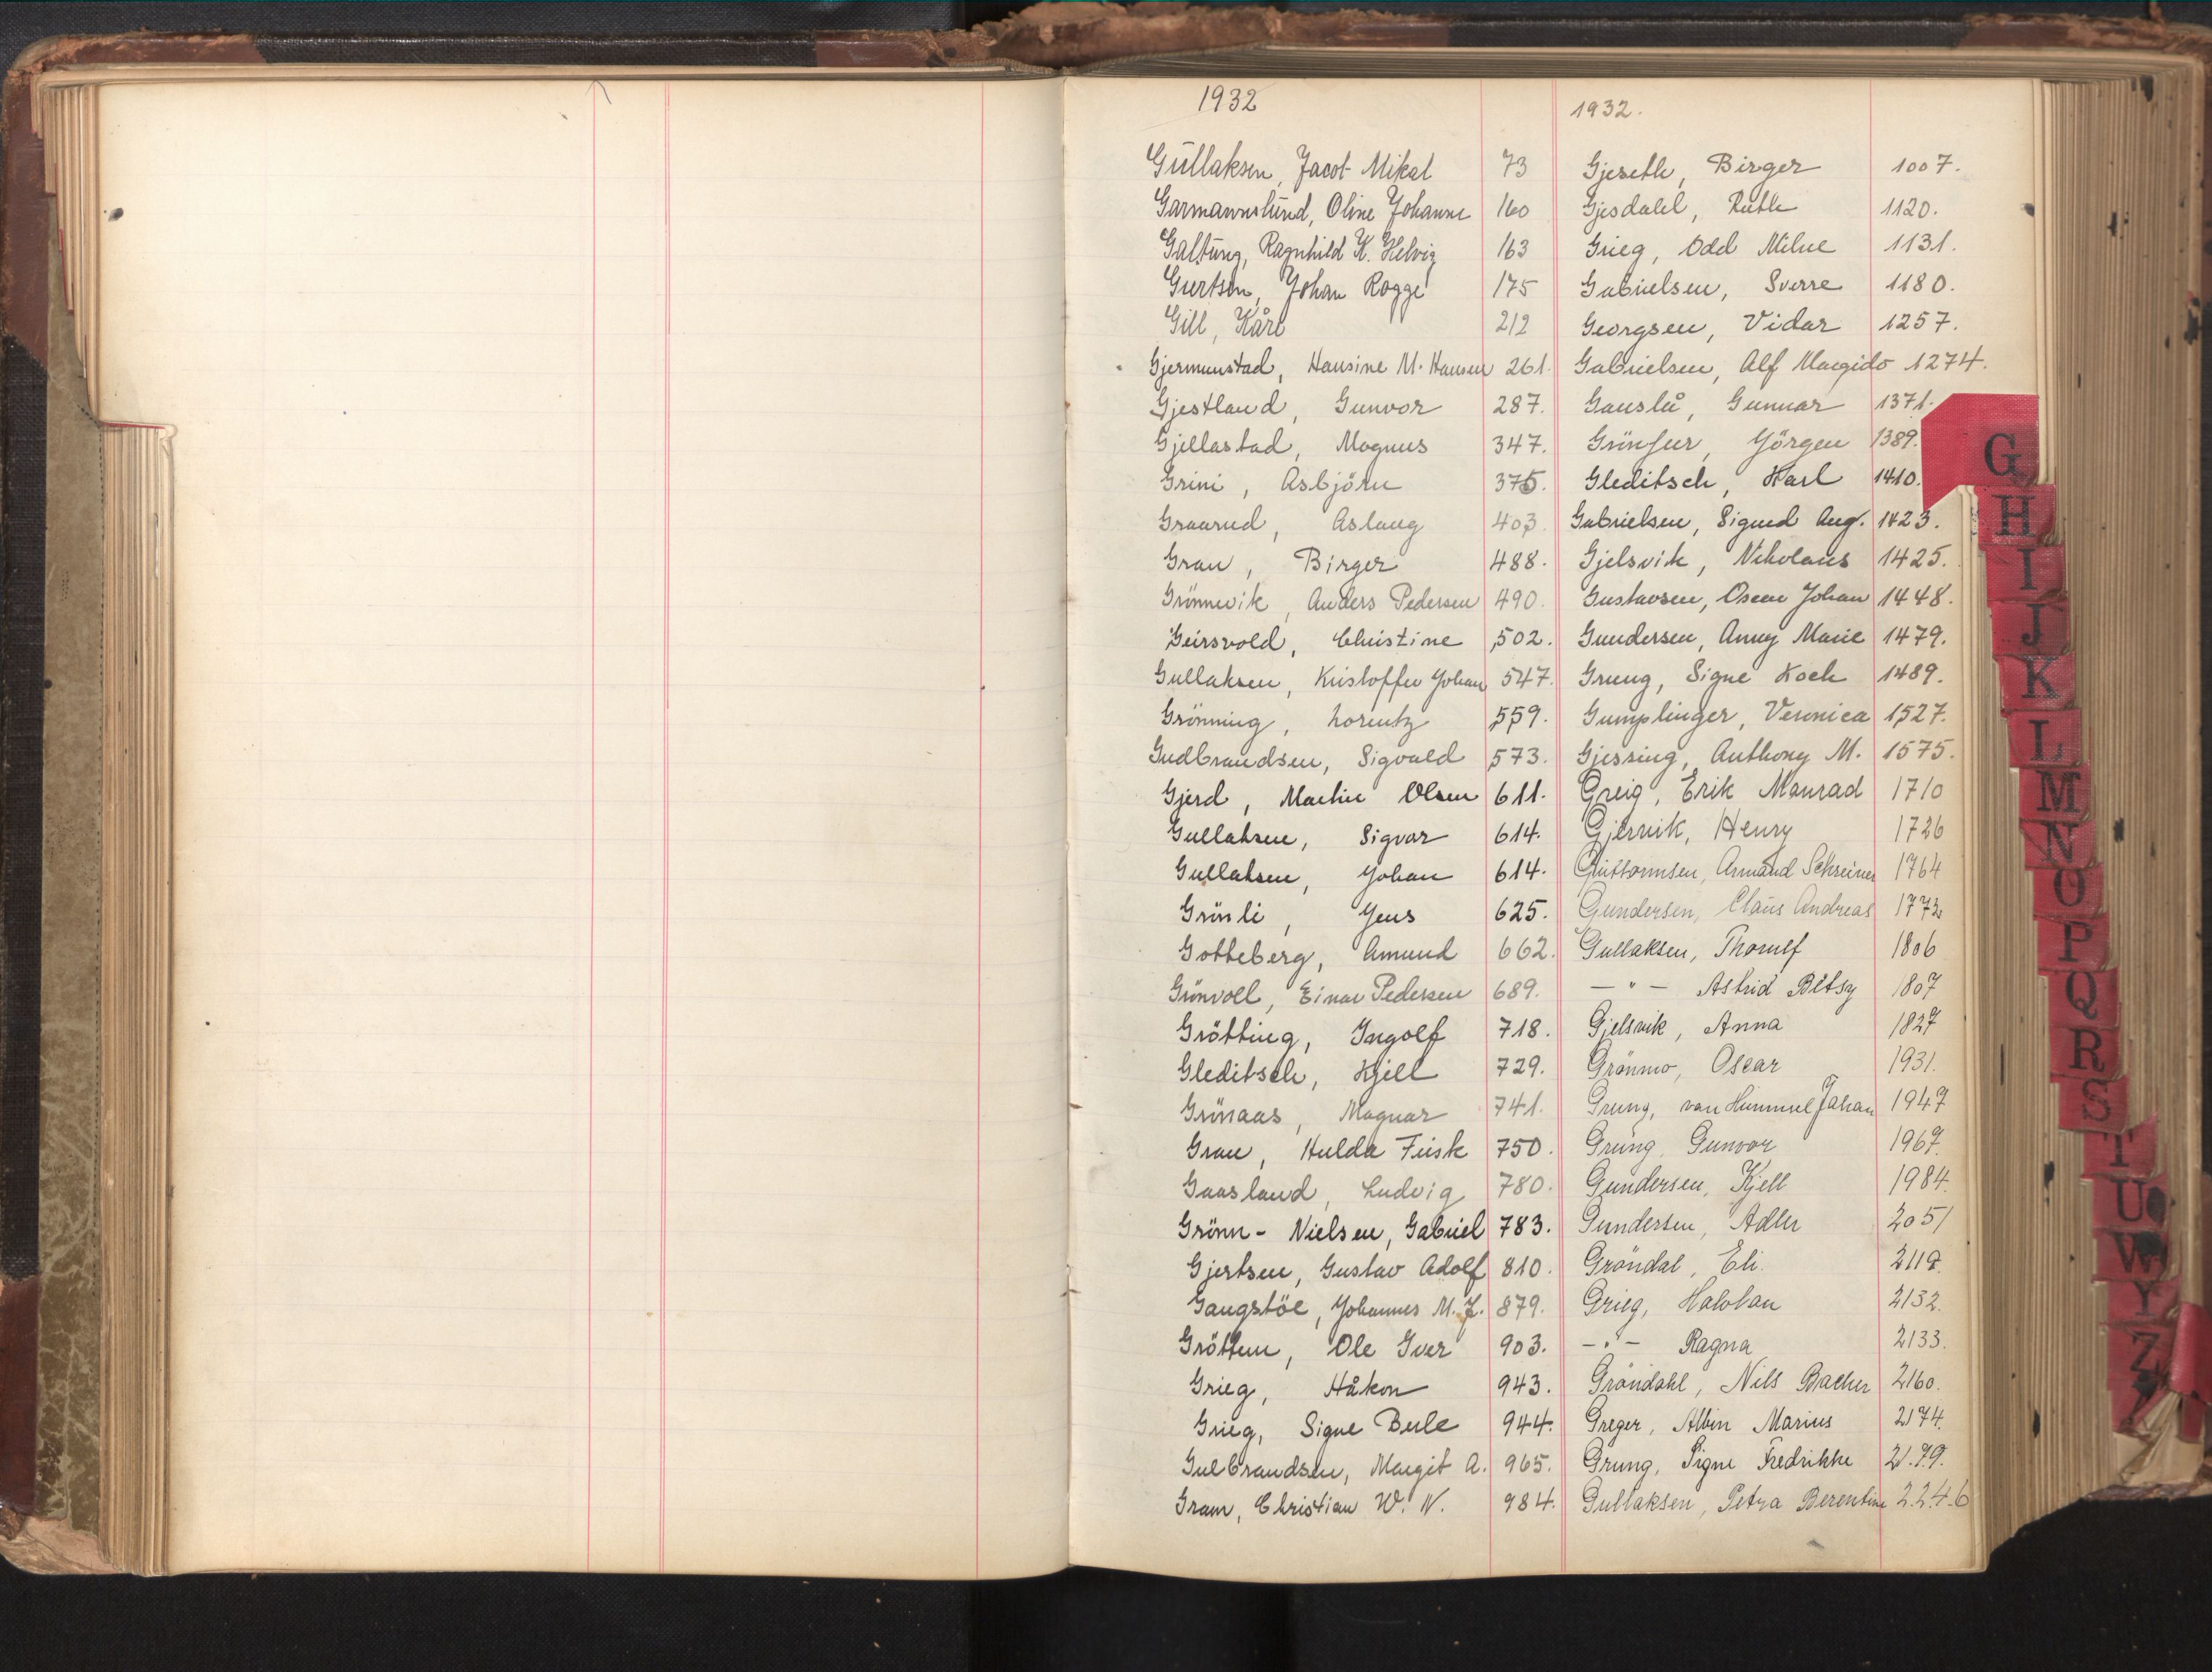 1932
Gullaksen, Jacob Mikal 73
Garmannslund, Oline Johanne 160
Galtung, Ragnhild K. Helvig 163
Giertsen, Johan Rogge 175
Gill, Kåre 212
Gjermunstad, Hansine M. Hansen 261.
Gjestland, Gunvor 287.
Gjellastad, Magnus 347.
Grini, Asbjörn 375.
Graarud, Aslaug 403.
Gran, Birger 488.
Grönnevik, Anders Pedersen 490.
Geirsvold, Christine 502.
Gullaksen, Kristoffer Johan 547.
Grönning, Lorentz 559.
Gudbrandsen, Sigvald 573.
Gjerd, Martin Olsen 611.
Gullaksen, Sigvar 614.
Gullaksen, Johan 614.
Grönli, Jens 625.
Gotteberg, Amund 662.
Grönvoll, Einar Pedersen 689.
Grötting, Ingolf 718.
Gleditsch, Kjell 729.
Grönaas, Magnar 741.
Gran, Hulda Fiisk 750.
Gaasland, Ludvig 780.
Grönn-Nielsen, Gabriel 783.
Gjertsen, Gustav Adolf 810.
Gangstöe, Johannes M. J. 879.
Gröttem, Ole Iver 903.
Grieg, Håkon 943.
Grieg, Signe Berle 944.
Gulbrandsen, Margit A. 965.
Gram, Christian W. N. 984.
1932.
Gjeseth, Birger 1007.
Gjesdahl, Ruth 1120.
Grieg, Odd Milne 1131.
Gabrielsen, Sverre 1180.
Georgsen, Vidar 1257.
Gabrielsen, Alf Margido 1274.
Gauslå, Gunnar 1371.
Jörgen 1389.
Gleditsch, Karl 1410.
Gabrielsen, Sigurd Aug. 1423.
Gjelsvik, Nikolaus 1425.
Gustavsen, Oscar Johan 1448.
Gundersen, Anny Marie 1479.
Grung, Signe Koch 1489.
Gumplinger, Veronica 1527.
Gjessing, Anthony M. 1575.
Greig, Erik Monrad 1710
Gjervik, Henry 1726
Guttormsen, Armand Schreiner 1764
Gundersen, Claus Andreas 1772
Gullaksen, Thorulf 1806
— " — Astrid Betsy 1807
Gjelsvik, Anna 1827
Grönmo, Oscar 1931.
Grung, van Himmel Johan 1947
Grung, Gunvor 1967.
Gundersen, Kjell 1984.
Gundersen, Adler 2051
Gröndal, Eli. 2119.
Grieg, Halvdan 2132.
— " — Ragna 2133.
Gröndahl, Nils Bacher 2160.
Greger, Albin Marius 2174.
Grung, Signe Fredrikke 2179.
Gullaksen, Petra Berentine 2246
G
H
I
J
K
L
M
N
O
P
Q
R
S
T
U
W
Y
Z